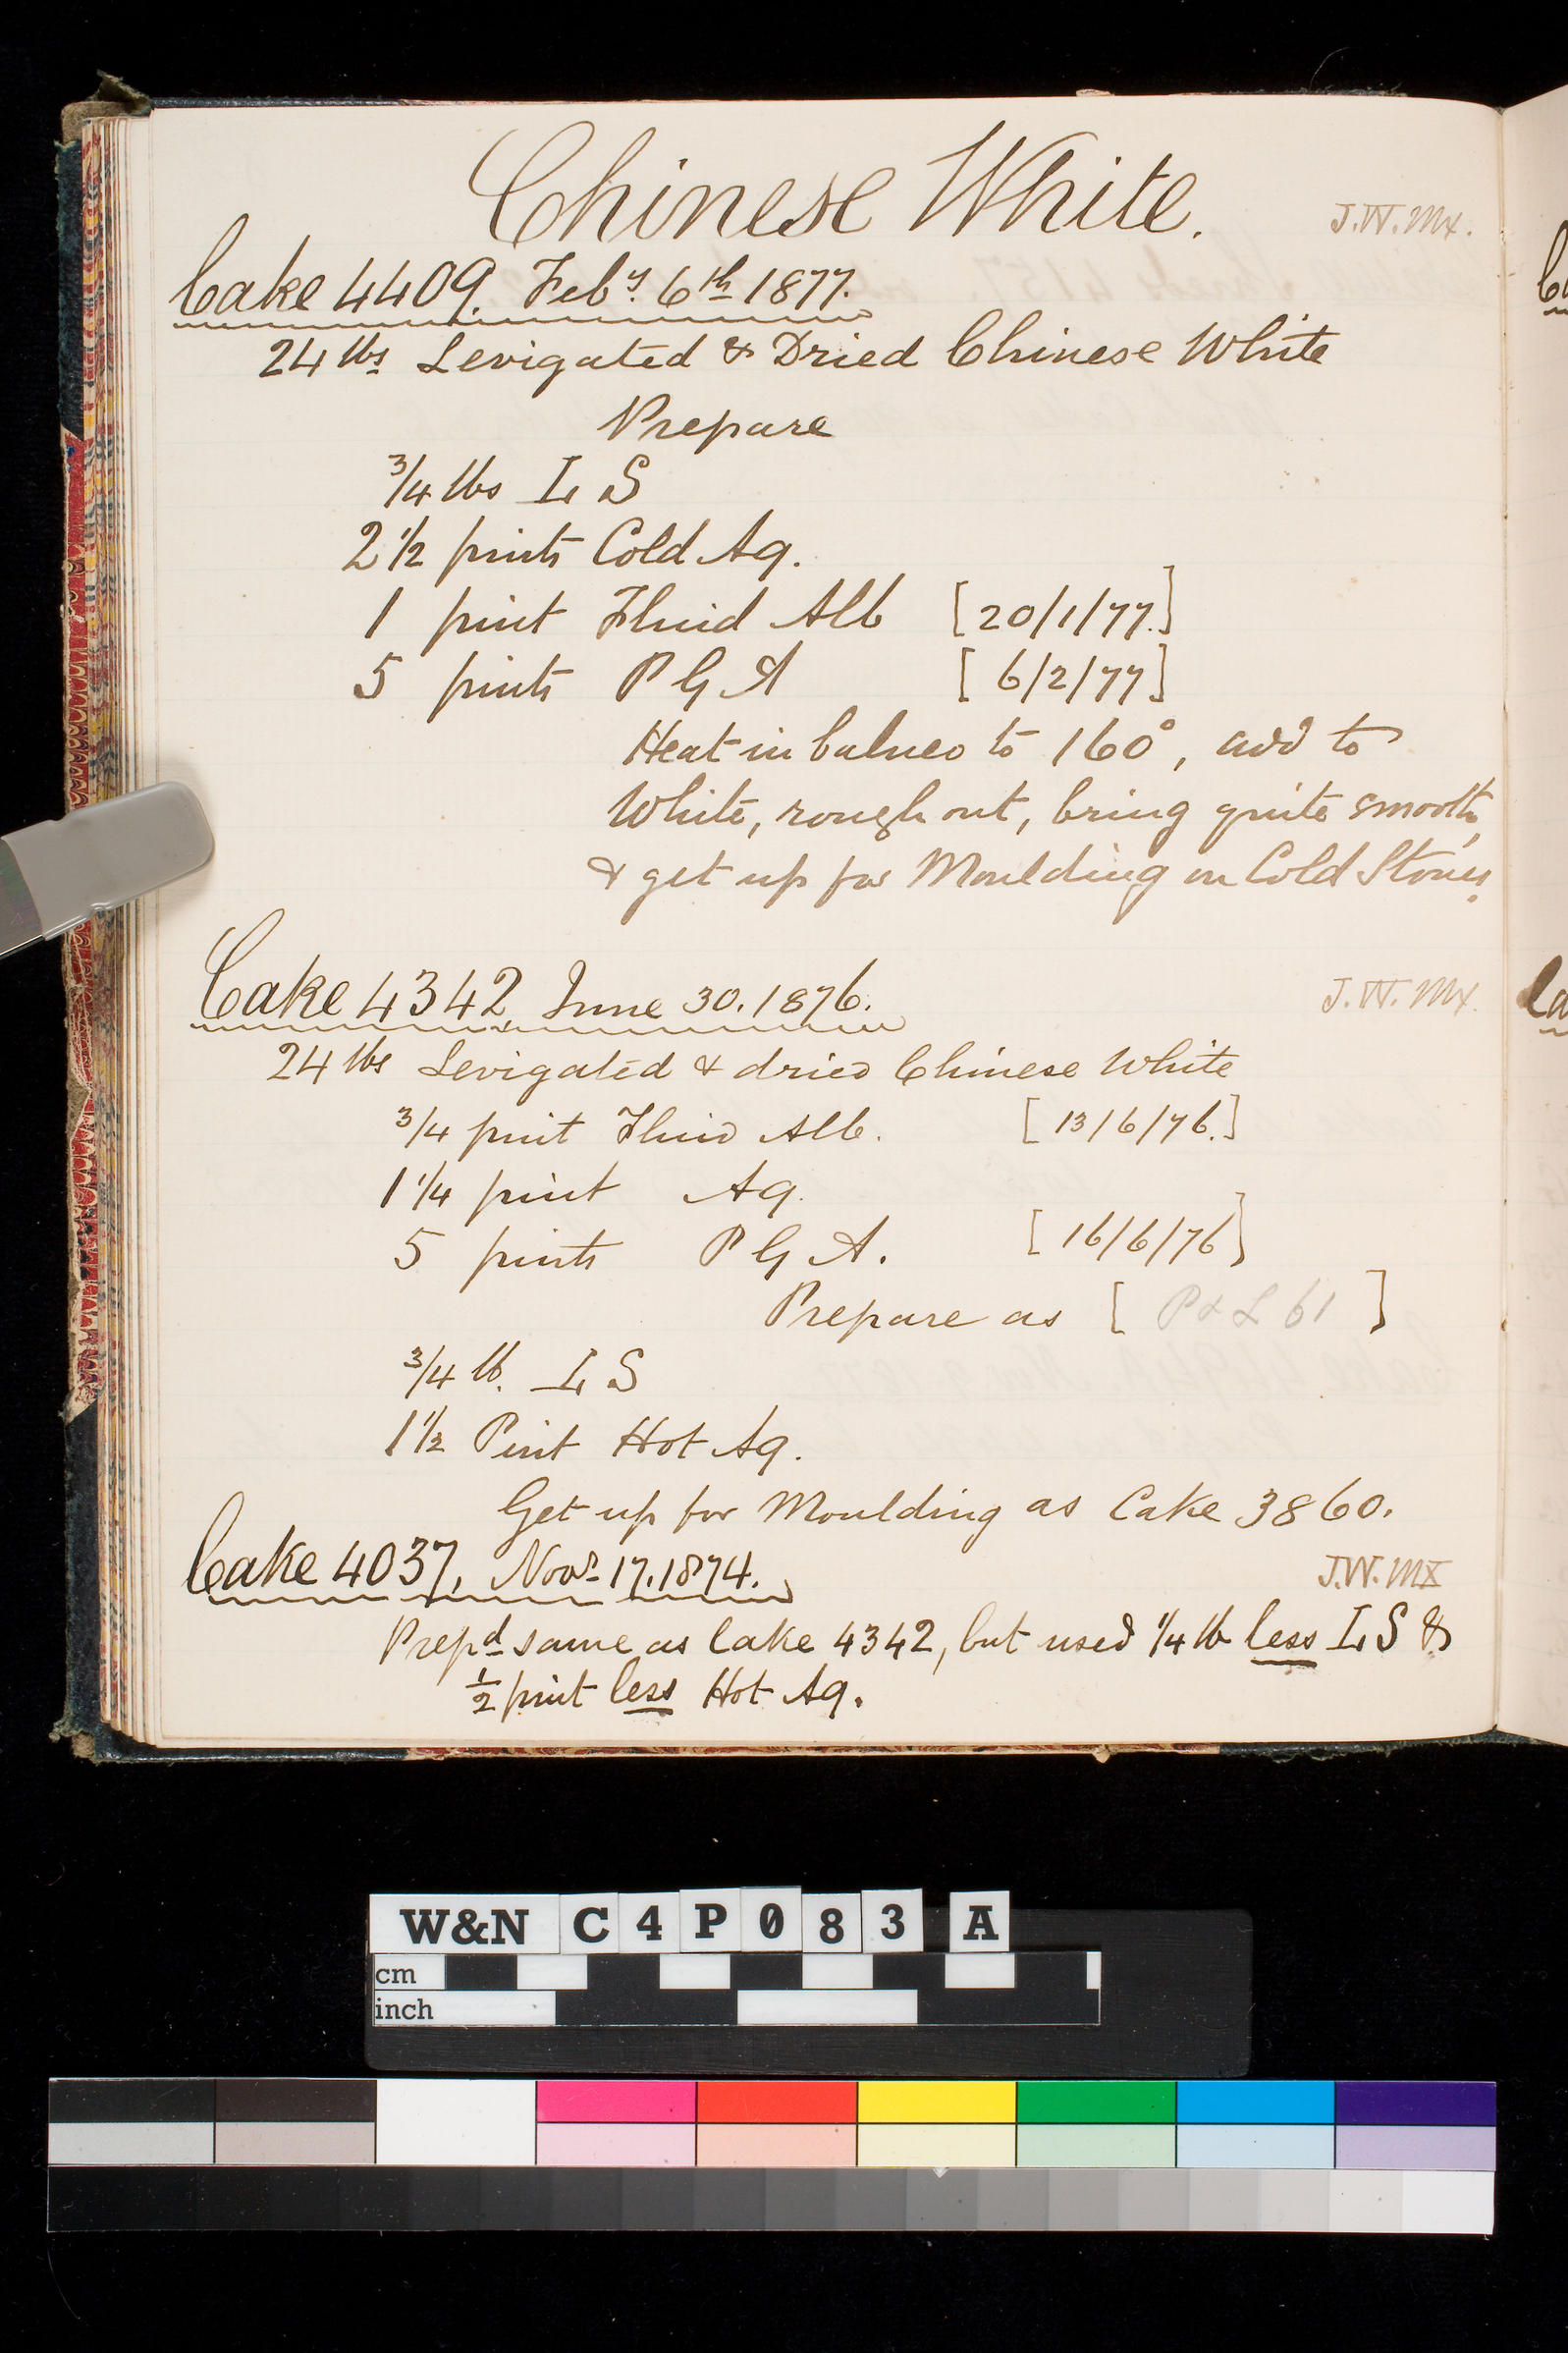 Chinese White.
J.W. Mx.
Cake 4409. Feby. 6th 1877.
24 lbs Levigated & Dried Chinese White
Prepare
3/4 lbs L S
2 1/2 pints Cold Aq.
1 pint Fluid Alb [20/1/77.]
5 pints P G A [6/2/77]
Heat in balneo to 160°, add to
White, rough out, bring quite smooth,
& get up for Moulding on Cold Stones.
Cake 4342 June 30. 1876.
J.W. Mx.
24 lbs Levigated & dried Chinese White
3/4 pint Fluid Alb. [13/6/76.]
1 1/4 pint Aq.
5 pints P G A. [16/6/76]
Prepare as [P & L 61]
3/4 lb. L S
1 1/2 Pint Hot Aq.
Get up for Moulding as Cake 3860.
Cake 4037, Novr 17. 1874.
J.W. MX
Prepd same as Cake 4342, but used 1/4 lb less L S &
1/2 pint less Hot Aq.
W&N C4P083 A
cm
inch